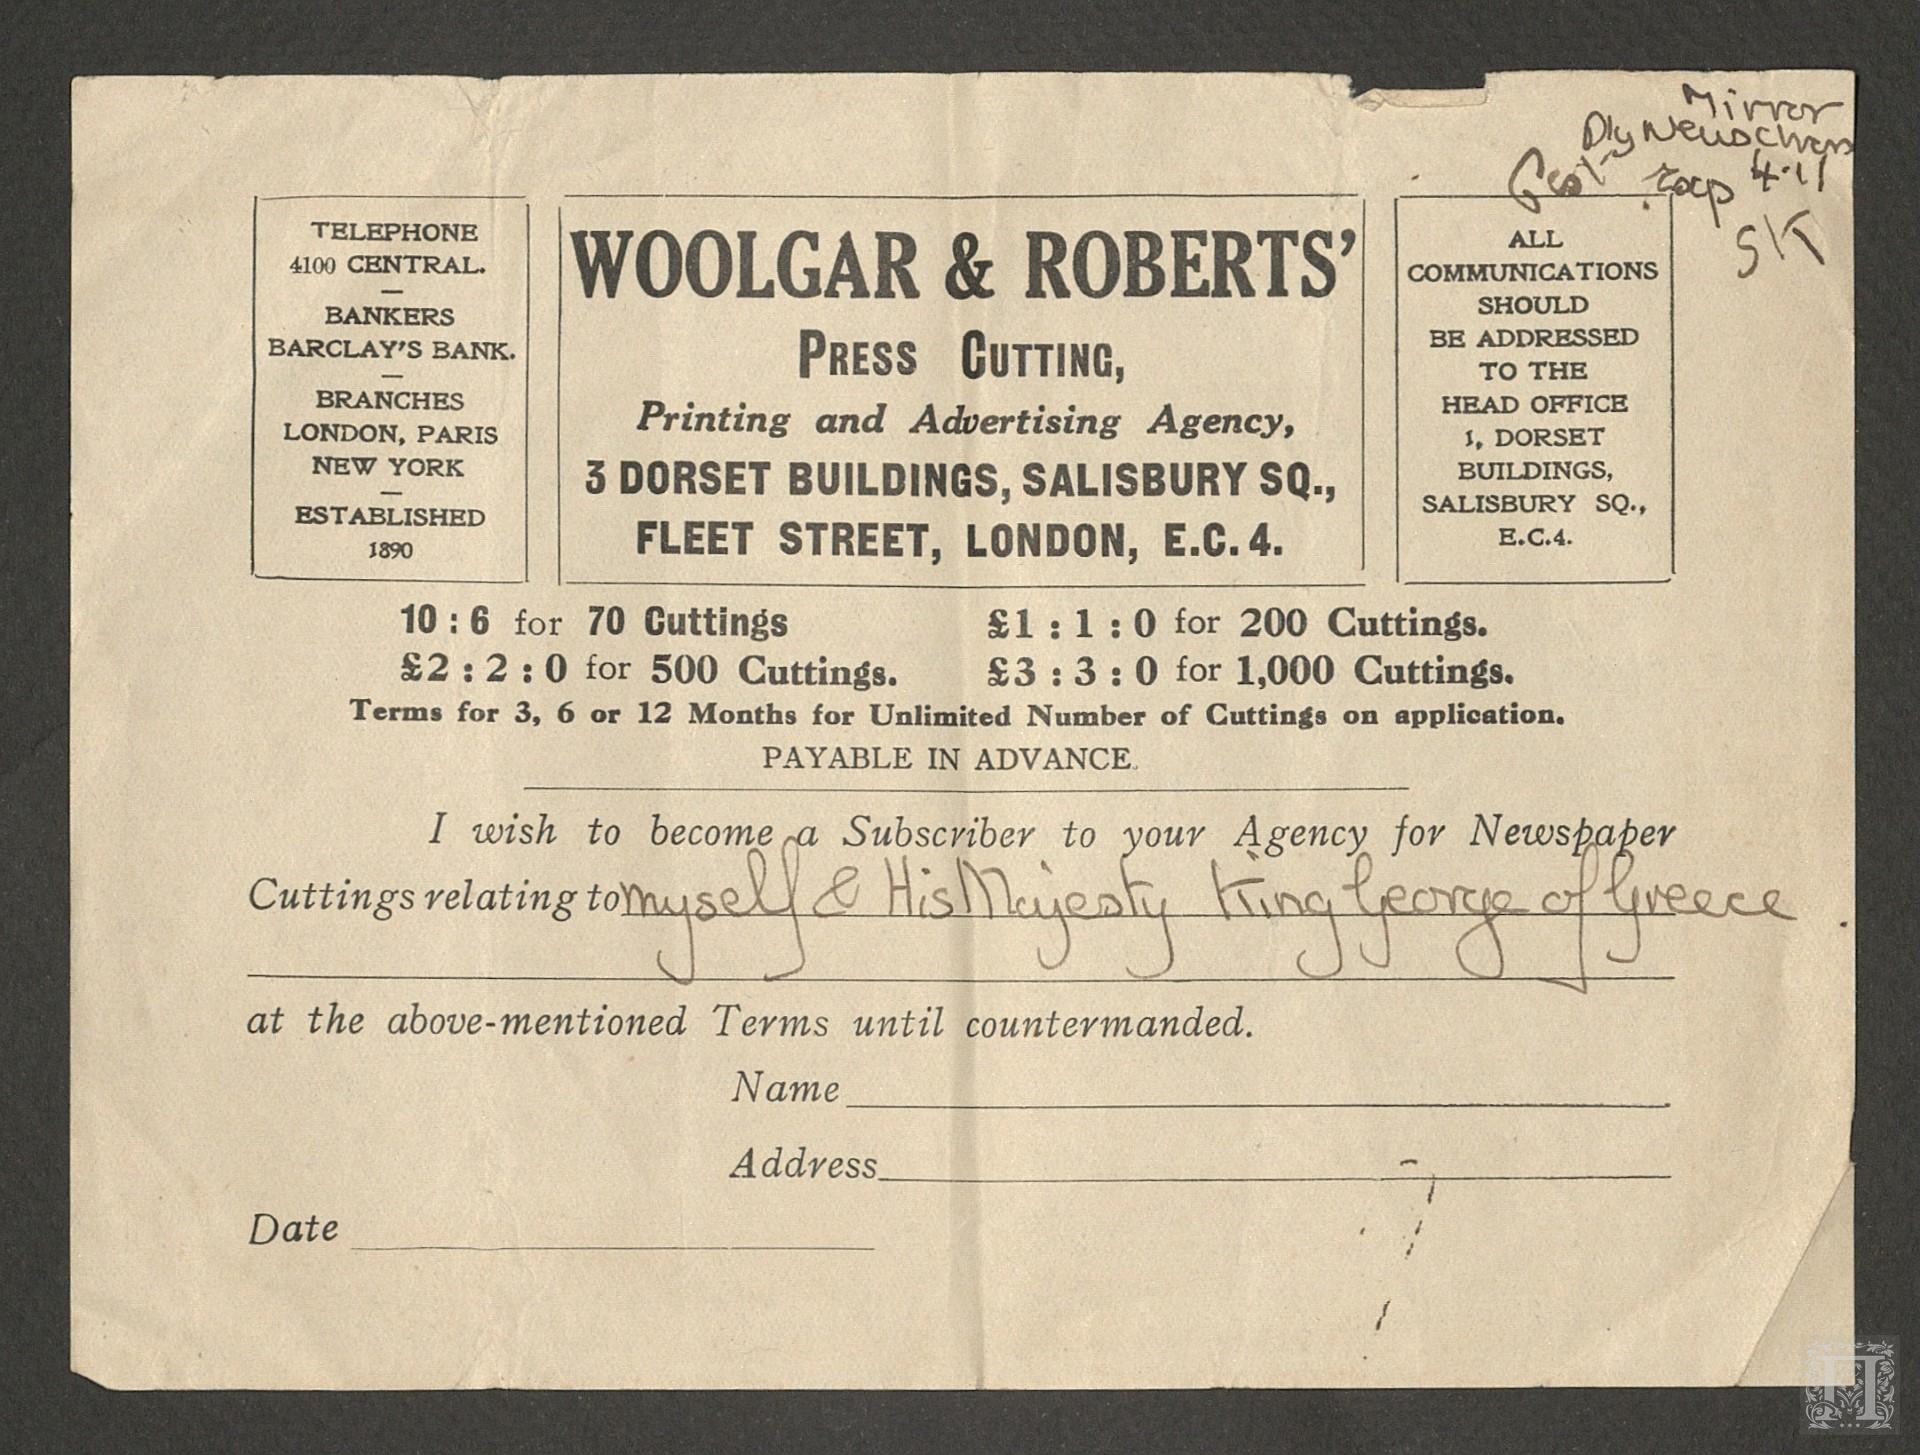 Mirror
Dly News Chron
4.11
SK
TELEPHONE
4100 CENTRAL.
—
BANKERS
BARCLAY'S BANK.
—
BRANCHES
LONDON, PARIS
NEW YORK
—
ESTABLISHED
1890
WOOLGAR & ROBERTS'
PRESS CUTTING,
Printing and Advertising Agency,
3 DORSET BUILDINGS, SALISBURY SQ.,
FLEET STREET, LONDON, E.C.4.
ALL
COMMUNICATIONS
SHOULD
BE ADDRESSED
TO THE
HEAD OFFICE
1, DORSET
BUILDINGS,
SALISBURY SQ.,
E.C.4.
10 : 6 for 70 Cuttings £1 : 1 : 0 for 200 Cuttings.
£2 : 2 : 0 for 500 Cuttings. £3 : 3 : 0 for 1,000 Cuttings.
Terms for 3, 6 or 12 Months for Unlimited Number of Cuttings on application.
PAYABLE IN ADVANCE.
I wish to become a Subscriber to your Agency for Newspaper
Cuttings relating to myself & His Majesty King George of Greece
at the above-mentioned Terms until countermanded.
Name
Address
Date